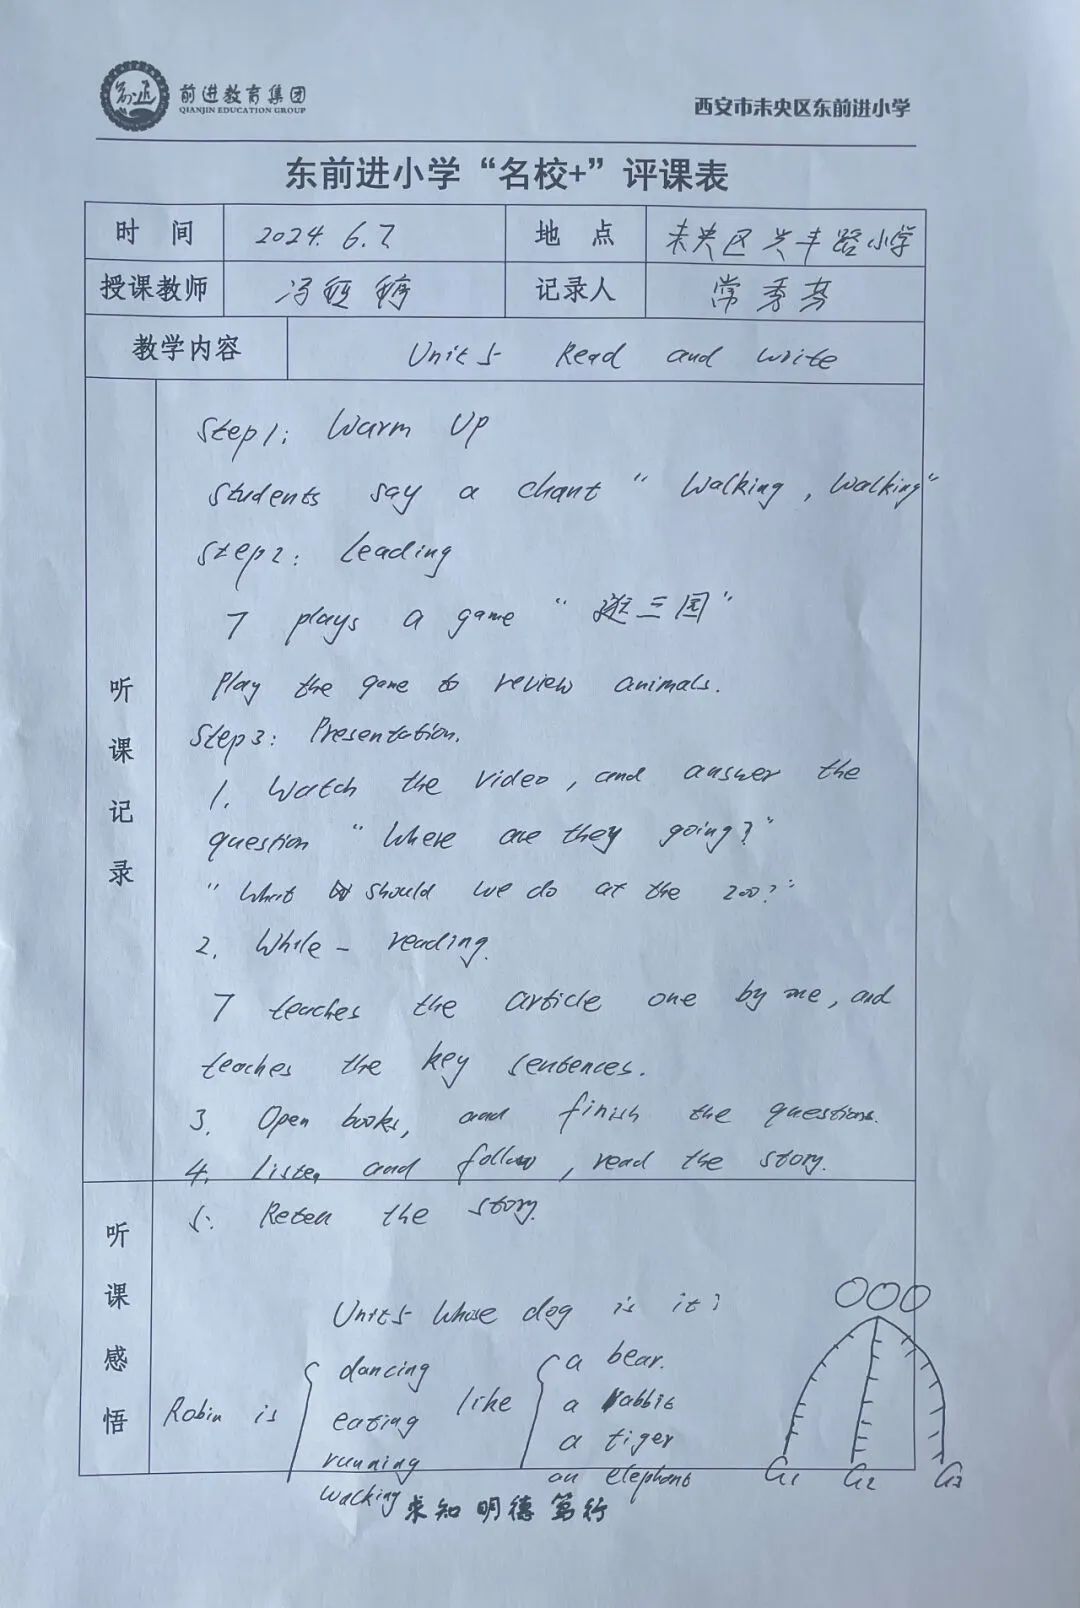 前进教育集团
QIANJIN EDUCATION GROUP
西安市未央区东前进小学
东前进小学“名校+”评课表
时 间 2024. 6.7. 地 点 未央区兴丰路小学
授课教师 冯 记录人 常秀芬
教学内容 Unit 5 Read and write
听课记录
Step1: Warm Up
Students say a chant “Walking, Walking”
Step2: Leading
T plays a game “逛三园”
Play the game to review animals.
Step3: Presentation.
1. Watch the video, and answer the
question “Where are they going?”
“What should we do at the zoo?”
2. While-reading.
T teaches the article one by one, and
teaches the key sentences.
3. Open books, and finish the questions.
4. Listen and follow, read the story.
5. Retell the story.
听课感悟
Unit5 Whose dog is it?
Robin is dancing eating running walking like a bear. a rabbit a tiger an elephant
G1 G2 G3
求知 明德 笃行